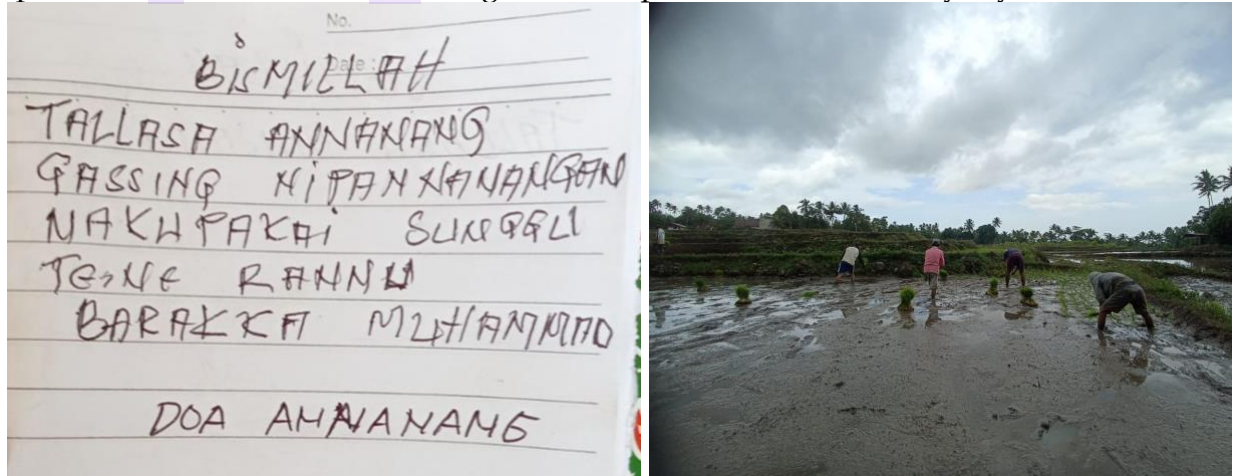 No.
Date :
BiSMILLAH
TALLASA ANNANANG
GASSING NiPANNANANGAN
NAKUPAKAi SUNGGU
TE,NE RANNU
BARAKKA MUHAMMAD
DOA ANNANANG